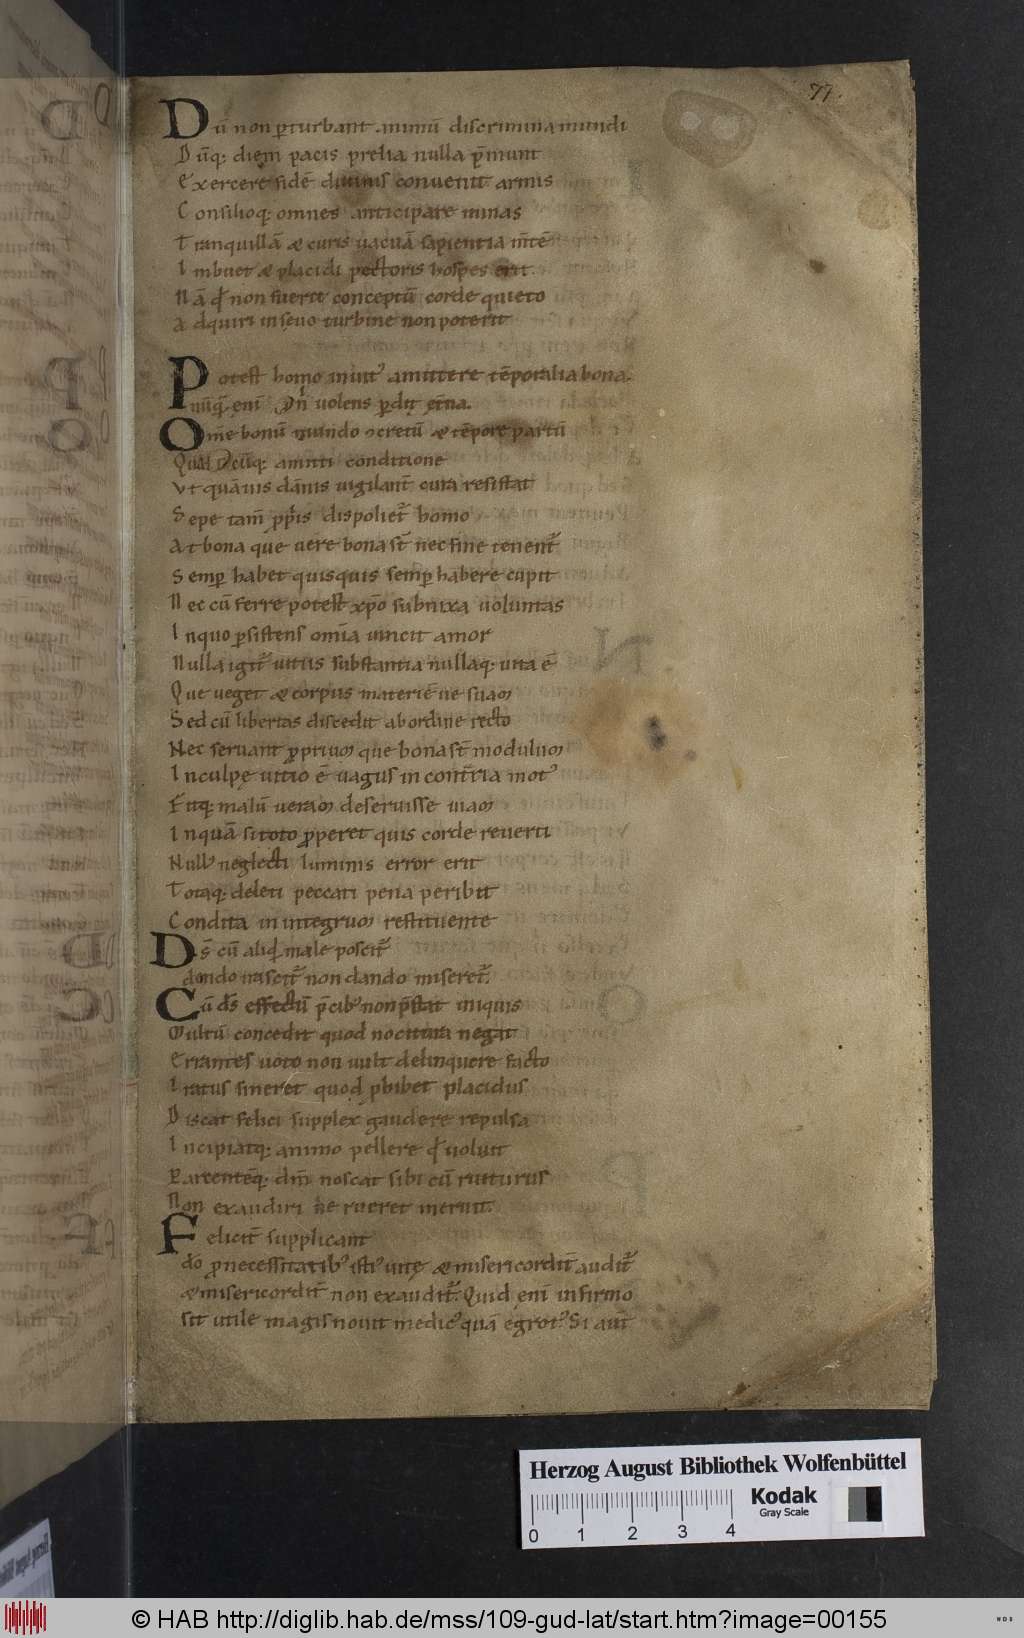 77.
Dū non ꝑturbant animū discrimina mundi
Dūq; diem pacis prelia nulla p̄munt
Exercere fidē diuinis conuenit armis
Consilioq; omnes anticipare minas
Tranquillā & curis uacuā sapientia m̄tē
Imbuet & placidi pectoris hospes erit.
Nā qd̄ non fuerit conceptū corde quieto
Adquiri in sęuo turbine non poterit
Potest homo inuit᾽ amittere tēporalia bona.
nūq̄ ęni Oñ uolens ꝑdit ęt̄na.
Om̄e bonū mundo ɔcretū & tēpore partū
amitti conditione
Vt quāuis dānis uigilant̄ cura resistat
Sepe tam̄ ꝓp̄is dispoliet᷑ homo
At bona que uere bona st̄ nec fine tenent᷑
Semꝑ habet quisquis semꝑ habere cupit
Nec cū ferre potest xp̄o subnixa uoluntas
Inquo ꝑsistens om̄ia uincit amor
Nulla igit᷑ uitiis substantia nullaq; uita ē
Que ueget & corpus materiē ue suam
Sed cū libertas discedit ab ordine recto
Nec seruant ꝓprium que bona st̄ modulum
In culpę uitio ē uagus in cont̄ria mot᾽
Fitq; malū ueram deseruisse uiam
In quā si toto ꝓperet quis corde reuerti
Null᾽ neglecti luminis error erit
Totaq; deleti peccati pena peribit
Condita in integrum restituente
Ds̄ cū aliqd̄ male poscit᷑
dando irascit᷑ non dando miseret᷑.
Cū ds̄ effectū p̄cib᾽ non p̄stat iniquis
Multū concedit quod nocitura negat
Errantes uoto non uult delinquere facto
Iratus sineret quod ꝓhibet placidus
Discat felici supplex gaudere repulsa
Incipiatq; animo pellere qd̄ uoluit
Parcentēq; dm̄ noscat sibi cū ruiturus
Non exaudiri ne rueret meruit.
Felicit̄ supplicant
dō ꝓ necessitatib᾽ isti᾽ uitę & misericordit̄ audit᷑
& misericordit̄ non exaudit᷑. Quid ęni infirmo
sit utile magis nouit medic᾽ quā ęgrot᾽. Si aut̄
Herzog August Bibliothek Wolfenbüttel
Kodak
Gray Scale
0 1 2 3 4
© HAB http://diglib.hab.de/mss/109-gud-lat/start.htm?image=00155